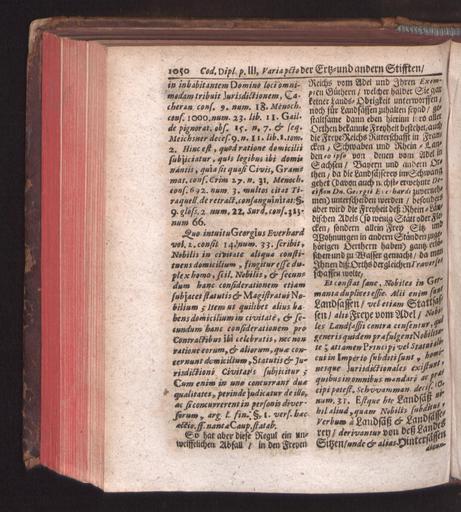 1050 Cod. Dipl. p. III, Varia pcto der Ertz- und andern Stifften/
in inhabitantem Domino loci omni-
modam tribuit Jurisdictionem, Ca-
cheran conf. 9. num. 18. Menoch.
conf. 1000. num. 23. lib. 11. Gail.
de pignorat. obs. 15. n. 7. & seq.
Meichsner decis. 9. n. 11. lib. 1. tom.
2. Hinc est, quod ratione domicilii
subjiciatur, quis legibus ibi domi-
nantis, quasi quasi Civis, Gram-
mat. conf. Crim 27. n. 31. Menoch.
conf. 692. num. 3. multas citat Ti-
raquell. de retract. consanguinitat: §.
9. gloss. 2. num. 22. Surd. conf. 313.
num 66.
Quo intuitu Georgius Everhard
vol. 2. consil 14. num. 33. scribit,
Nobilis in civitate aliqua consti-
tuens domicilium, fingitur esse du-
plex homo, scil. Nobilis, & secun-
dum hanc considerationem etiam
subjacet statutis & Magistratui No-
bilium; Item ut quilibet alius ha-
bens domicilium in civitate, & se-
cundum hanc considerationem pro
Contractibus ibi celebratis, nec non
ratione eorum, & aliorum, quæ con-
cernunt domicilium, Statutis & Ju-
risdictioni Civitatis subjicitur;
Cum enim in uno concurrant duæ
qualitates, perinde judicatur de illo,
ac si concurrerent in personis diver-
sorum, arg. l. fin. §. 1. vers. hæc
actio. ff. naut. Caup. stab.
So hat aber diese Regul ein un-
zweiffelichen Abfall / in den Freyen
Reichs vom Adel und Ihren Exem-
pten Güthern / welcher halber Sie gar
keiner Lands-Obrigkeit unterworffen /
noch für Landsassen zuhalten seynd / ge-
stalt same dann eben hierinn
Orthen bekannte Freyheit besitzet, auch
die Freye Reichs Ritterschafft in Fran-
cken / Schwaben und Rhein / Lan-
den eo ipso von denen vom Adel in
Sachsen / Bayern und andern Or-
then / da die Landsasserey im Schwang
gehet
men) unterscheiden werden / besonders
aber wird die Freyheit deß Rhein-
dischen Adels (so wenig Statt oder Fle-
cken / sondern allein Frey Sitz und
Wohnungen in andern Ständen zuge-
hörigen Oerthern haben) gantz erlö-
schen und zu Wasser gemacht / da man
Ihnen diß Orths dergleichen Traversen
schaffen wolte,
Et constat sane, Nobiles in Ger-
mania duplices esse. Alii enim sunt
Landsassen / vel etiam Stattsas-
sen / alii Freye vom Adel / Nobi-
les Landsassii contra censentur, qui
generis quidem præfulgent Nobilita-
te; attamen Principi vel Statui ali-
cui in Imperio subditi sunt, homi-
nesque Jurisdictionales existunt,
quibus in omnibus mandari à Prin-
cipi potest, Schwanman. decis.
num. 31. Estque hic Landsäß ni-
hil aliud, quam Nobilis subditus,
Verbum à Landsäß & Landsasse-
rey / derivantur von deß Landes
Sitzen / unde & alias Hintersässen